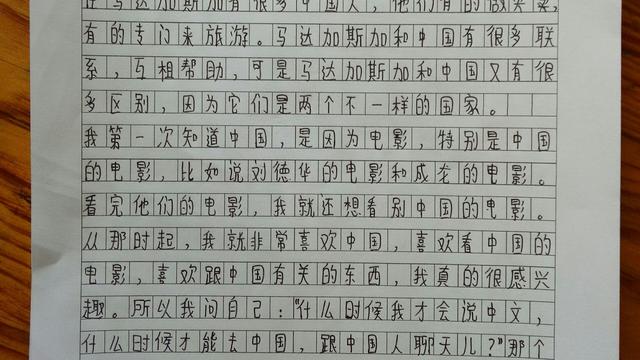 在马达加斯加有很多中国人，他们有的做买卖，
有的专门来旅游。马达加斯加和中国有很多联
系，互相帮助，可是马达加斯加和中国又有很
多区别，因为它们是两个不一样的国家。
我第一次知道中国，是因为电影，特别是中国
的电影，比如说刘德华的电影和成龙的电影。
看完他们的电影，我就还想看别中国的电影。
从那时起，我就非常喜欢中国，喜欢看中国的
电影，喜欢跟中国有关的东西，我真的很感兴
趣。所以我问自己："什么时候我才会说中文，
什么时候才能去中国，跟中国人聊天儿？"那个